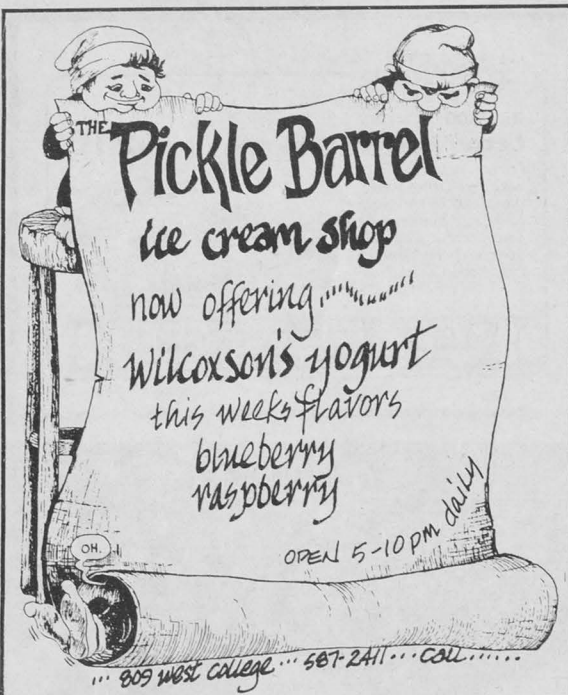 THE
Pickle Barrel
ice cream shop
now offering
Wilcoxson's yogurt
this weeks flavors
blueberry
raspberry
OPEN 5-10 pm daily
OH.
... 809 west college ... 587-2411 ... call ......